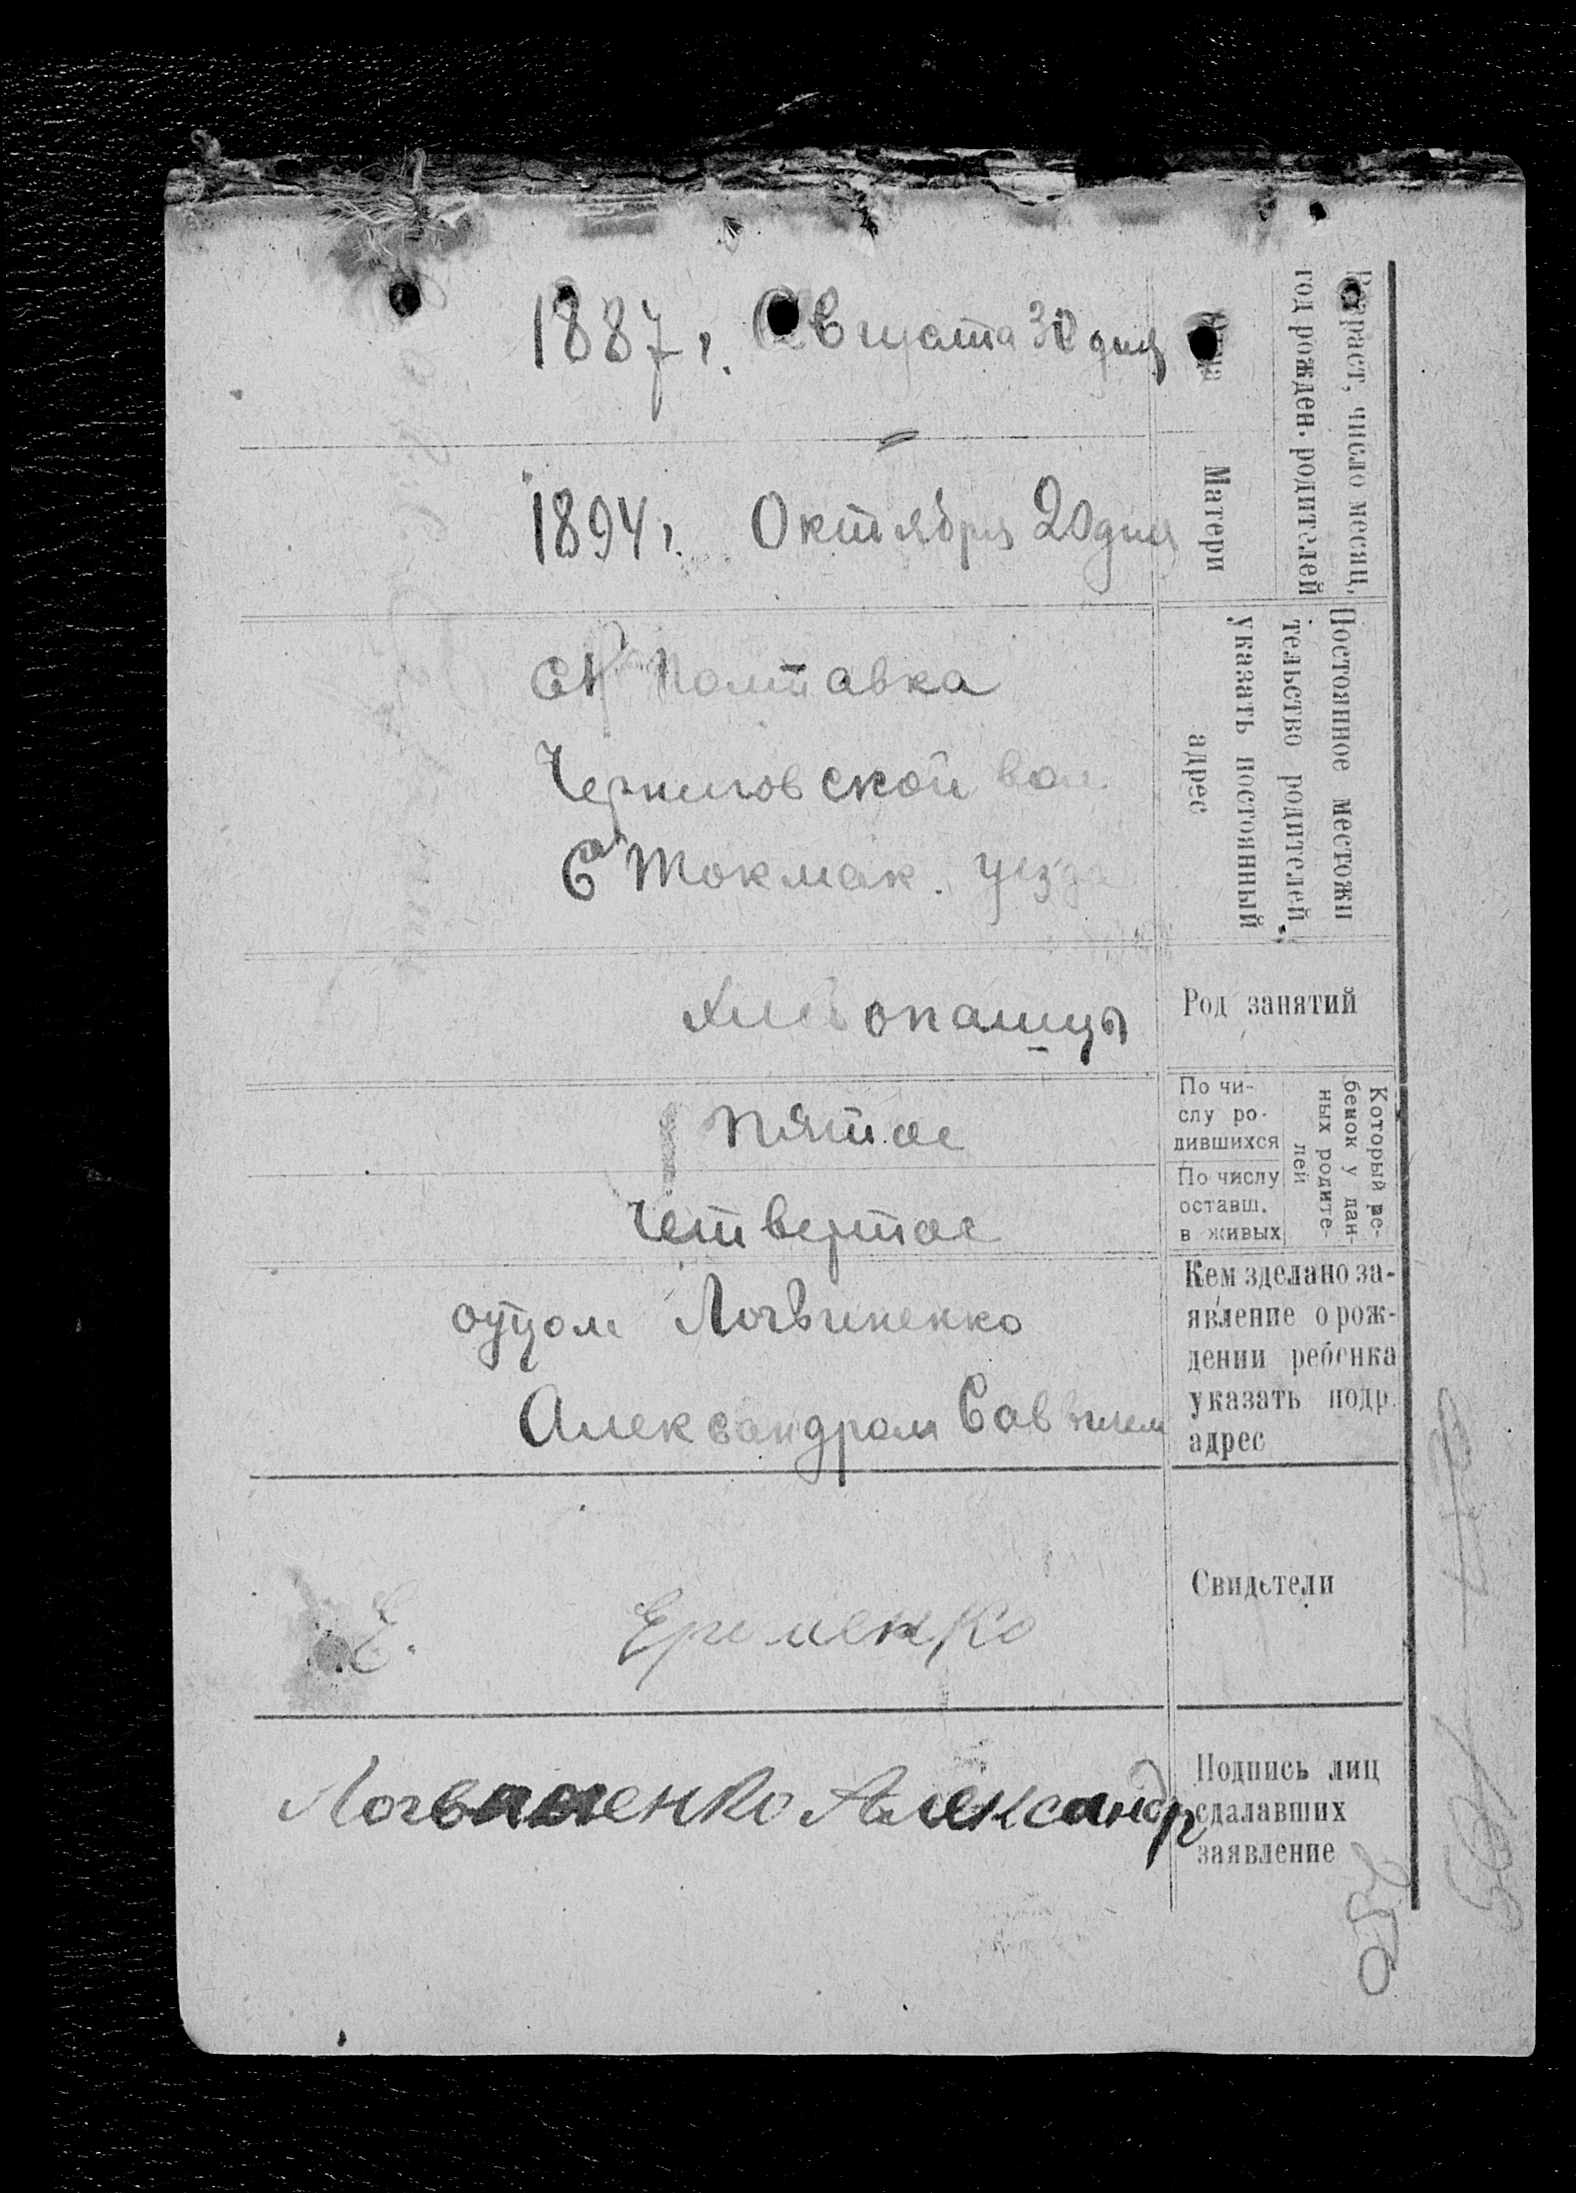 Возраст, число месяц,
год рожден. родителей
Отца
1887 г. Августа 30 дня
Матери
1894 г. Октября 20 дня
Постоянное местожи
тельство родителей,
указать постоянный
адрес
Полтавка
Черниговской вол.
Б Токмак. уезда
Род занятий
хлебопашцы
Который ре-
бенок у дан-
ных родите-
лей
По чи-
слу ро-
дившихся
пятое
По числу
оставш.
в живых
Четвертое
Кем зделано за-
явление о рож-
дении ребенка
указать подр.
адрес
отцом Логвиненко
Александром
Свидетели
Е. Еременко
Подпись лиц
сдалавших
заявление
Логвиненко Александр